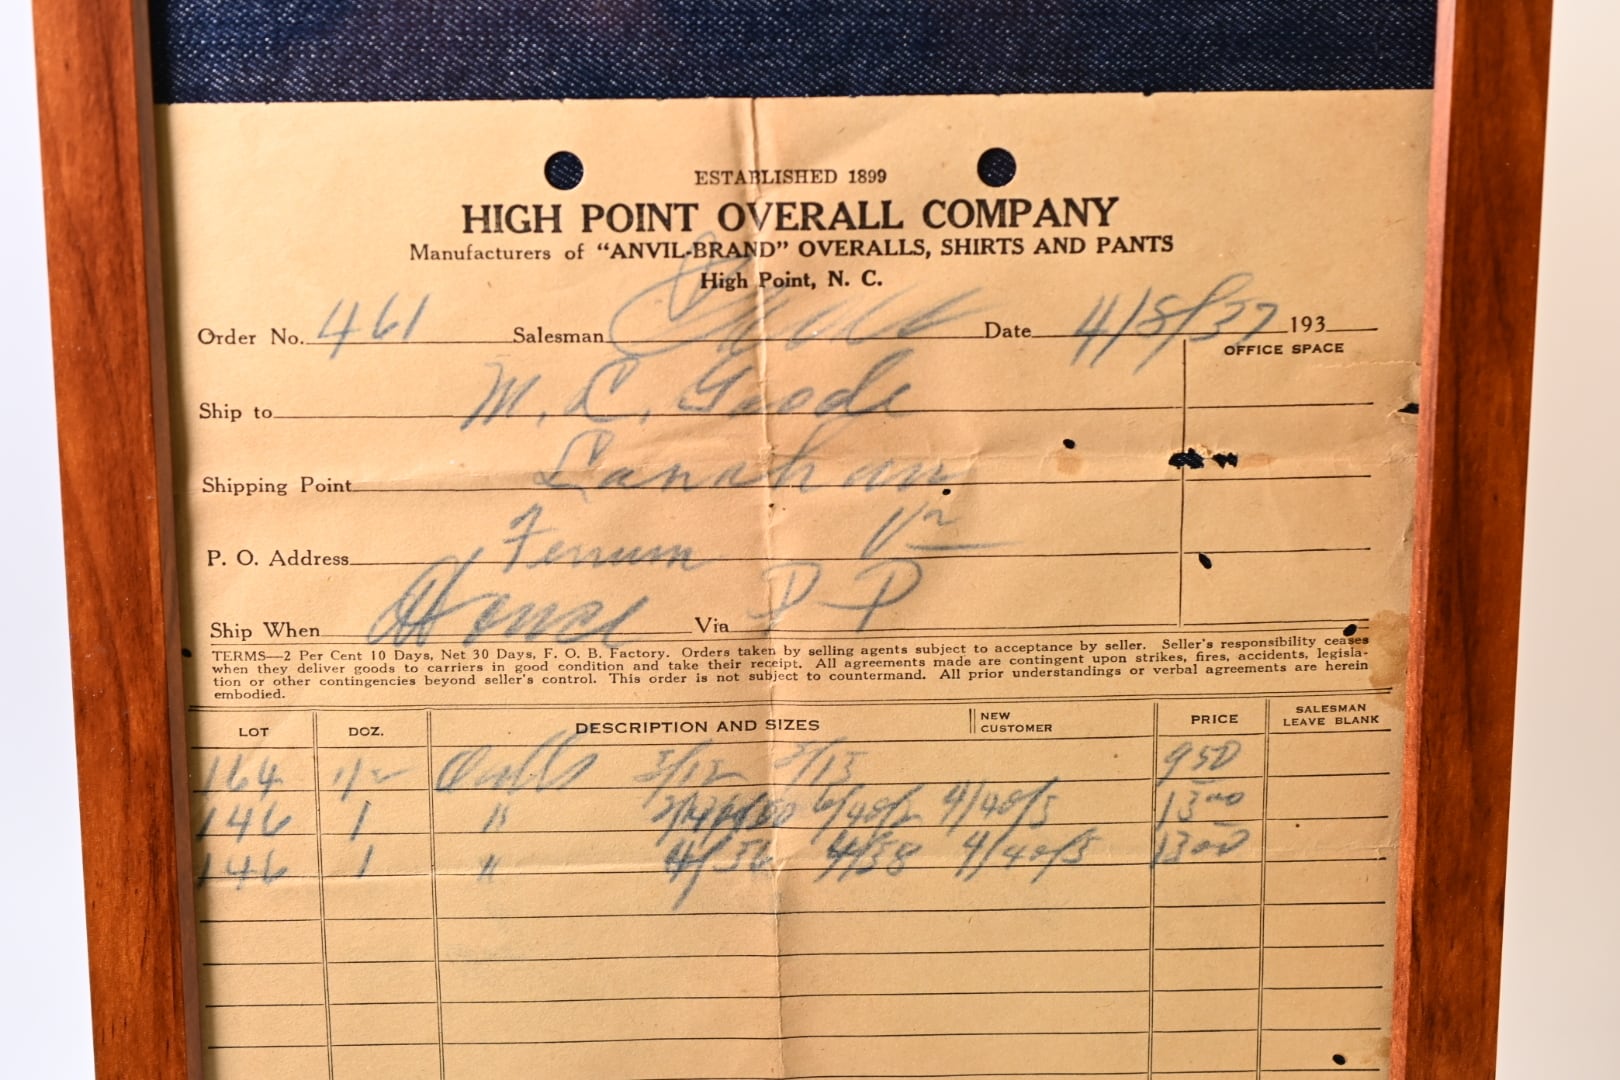 ESTABLISHED 1899
HIGH POINT OVERALL COMPANY
Manufacturers of "ANVIL-BRAND" OVERALLS, SHIRTS AND PANTS
High Point, N. C.
Order No. 461 Salesman Date 4/8/37 193
OFFICE SPACE
Ship to M. C. Goode
Shipping Point
P. O. Address Ferrum Va
Ship When Via P P
TERMS—2 Per Cent 10 Days, Net 30 Days, F. O. B. Factory. Orders taken by selling agents subject to acceptance by seller. Seller's responsibility ceases
when they deliver goods to carriers in good condition and take their receipt. All agreements made are contingent upon strikes, fires, accidents, legisla-
tion or other contingencies beyond seller's control. This order is not subject to countermand. All prior understandings or verbal agreements are herein
embodied.
LOT DOZ. DESCRIPTION AND SIZES NEW CUSTOMER PRICE SALESMAN LEAVE BLANK
164 1/2 3/12 3/15 950
146 1 " 4/40/3 1300
146 1 " 4/36 4/38 4/40/3 1300